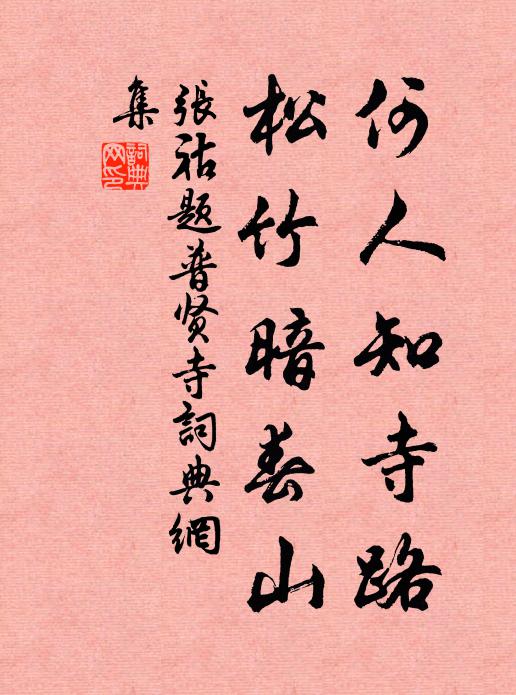 何人知寺路
松竹暗春山
張祜題普贤寺詞典網
集
詞典
网印